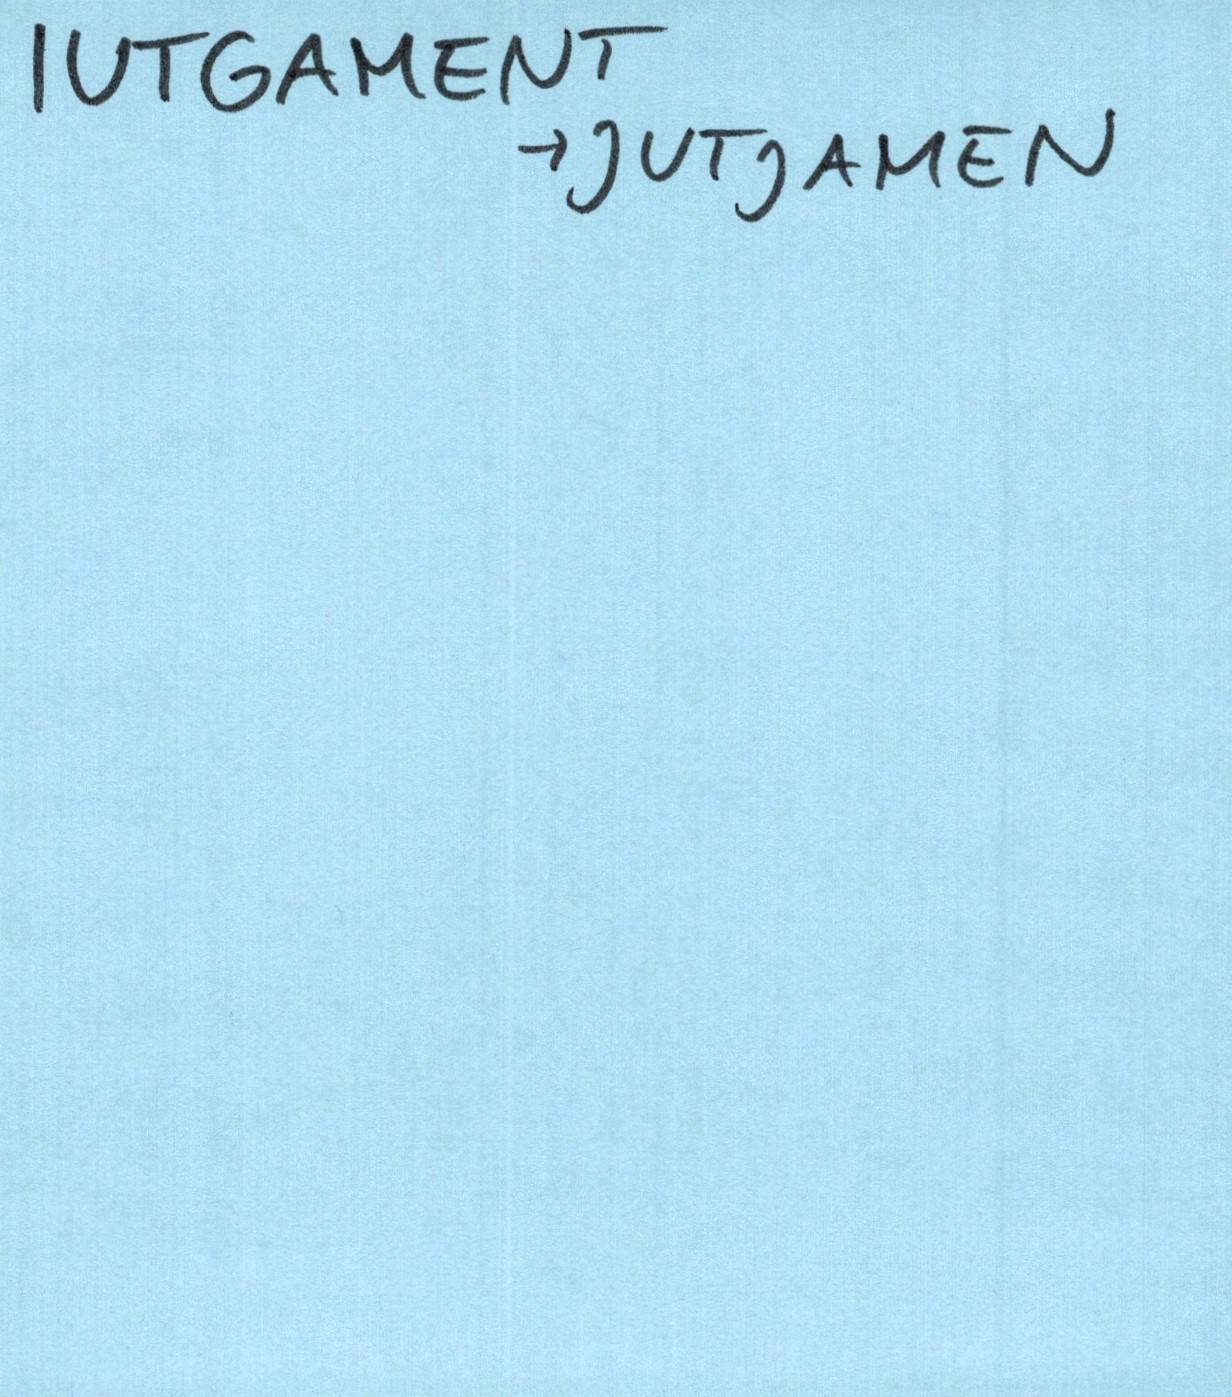 IUTGAMENT
→JUTJAMEN